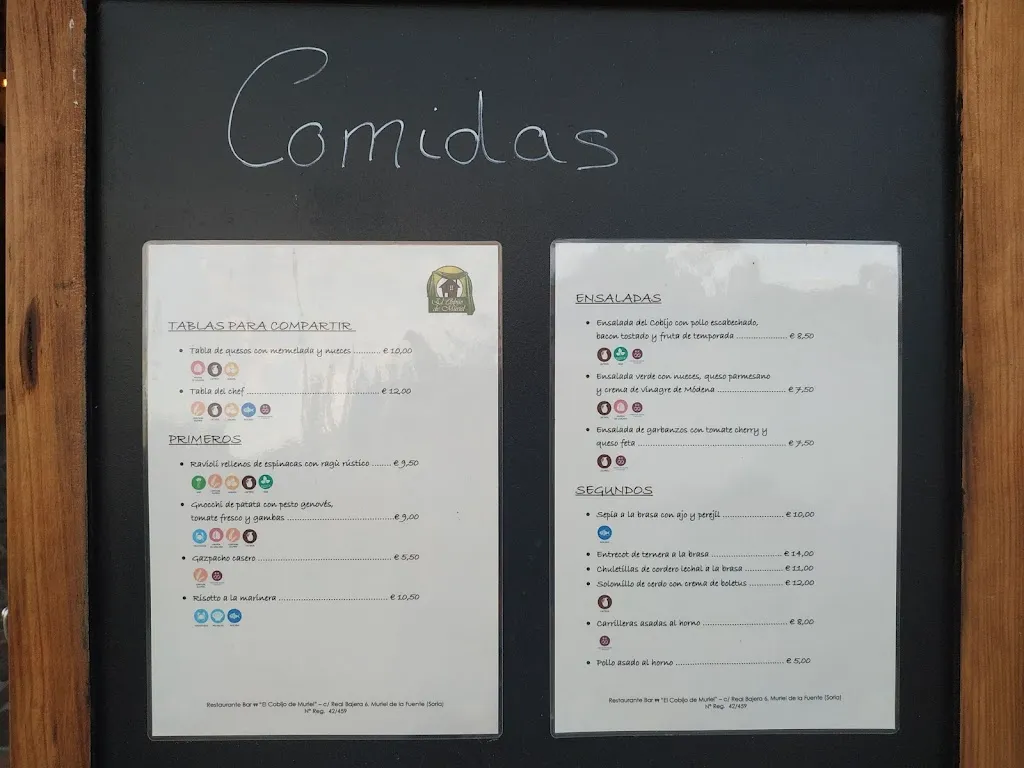 Comidas
El Cobijo
de Muriel
TABLAS PARA COMPARTIR
• Tabla de quesos con mermelada y nueces .......... € 10,00
• Tabla del chef ................................................ € 12,00
PRIMEROS
• Ravioli rellenos de espinacas con ragú rústico ....... € 9,50
• Gnocchi de patata con pesto genovés,
tomate fresco y gambas ......................................€ 9,00
• Gazpacho casero ................................................ € 5,50
• Risotto a la marinera ........................................ € 10,50
Restaurante Bar "El Cobijo de Muriel" – c/ Real Bajera 6, Muriel de la Fuente (Soria)
Nº Reg. 42/459
ENSALADAS
• Ensalada del Cobijo con pollo escabechado,
bacon tostado y fruta de temporada .................... € 8,50
• Ensalada verde con nueces, queso parmesano
y crema de vinagre de Módena .......................... € 7,50
• Ensalada de garbanzos con tomate cherry y
queso feta ...................................................... € 7,50
SEGUNDOS
• Sepia a la brasa con ajo y perejil ........................ € 10,00
• Entrecot de ternera a la brasa ............................ € 14,00
• Chuletillas de cordero lechal a la brasa ................ € 11,00
• Solomillo de cerdo con crema de boletus .............. € 12,00
• Carrilleras asadas al horno ................................ € 8,00
• Pollo asado al horno ........................................ € 5,00
Restaurante Bar "El Cobijo de Muriel" – c/ Real Bajera 6, Muriel de la Fuente (Soria)
Nº Reg. 42/459